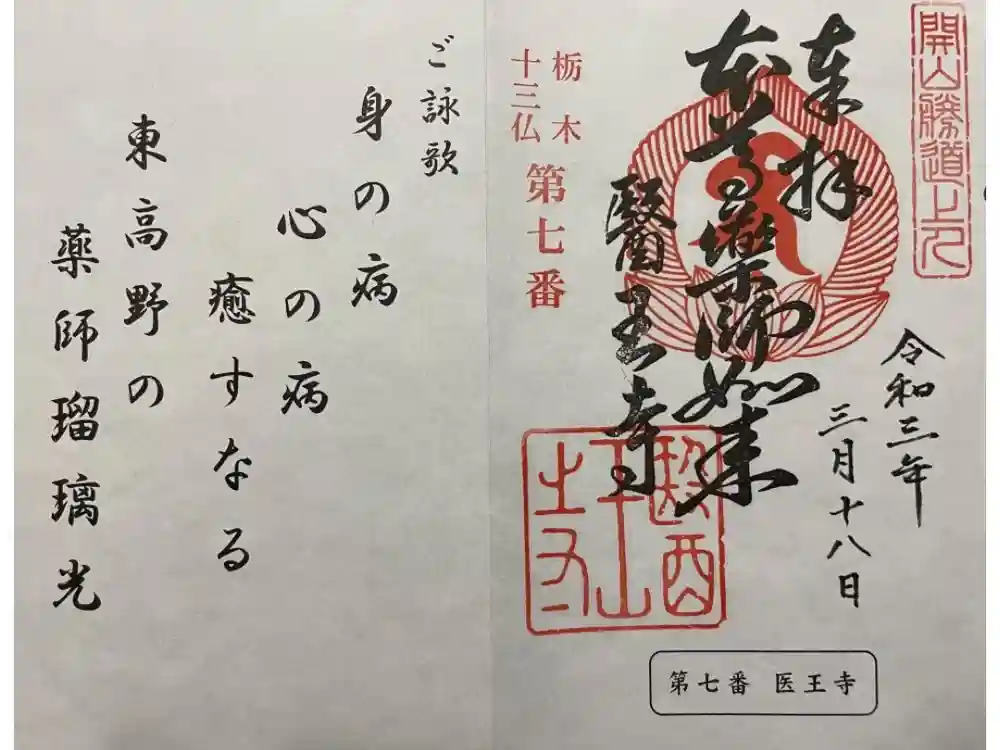 開山勝道上人
令和三年
三月十八日
奉拝
本尊薬師如来
醫王寺
栃木
十三仏
第七番
第七番 医王寺
ご詠歌
身の病
心の病
癒すなる
東高野の
薬師瑠璃光